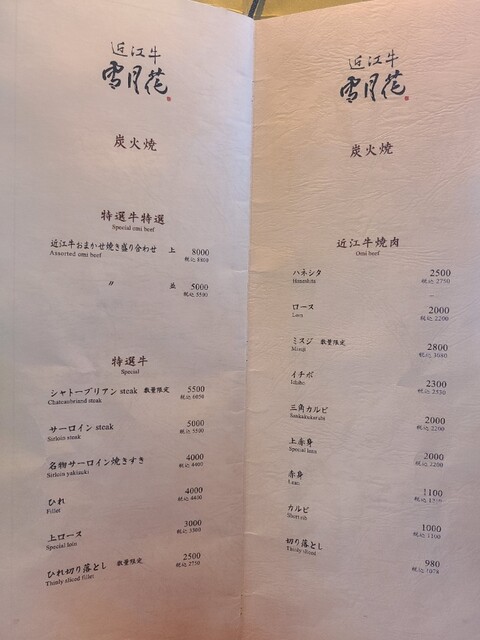 近江牛
雪月花
炭火焼
特選牛特選
Special omi beef
近江牛おまかせ焼き盛り合わせ 上 8000
Assorted omi beef 税込 8800
〃 並 5000
税込 5500
特選牛
Special
シャトーブリアン steak 数量限定 5500
Chateaubriand steak 税込 6050
サーロイン steak 5000
Sirloin steak 税込 5500
名物サーロイン焼きすき 4000
Sirloin yakisuki 税込 4400
ひれ 4000
Fillet 税込 4400
上ロース 3000
Special loin 税込 3300
ひれ切り落とし 数量限定 2500
Thinly sliced fillet 税込 2750
近江牛
雪月花
炭火焼
近江牛焼肉
Omi beef
ハネシタ 2500
Haneshita 税込 2750
ロース 2000
税込 2200
ミスジ 数量限定 2800
Misuji 税込 3080
イチボ 2300
Ichibo 税込 2530
三角カルビ 2000
Sankakukarubi 税込 2200
上赤身 2000
Special lean 税込 2200
赤身 1100
Lean 税込
カルビ 1000
Short rib 税込 1100
切り落とし 980
Thinly sliced 税込 1078